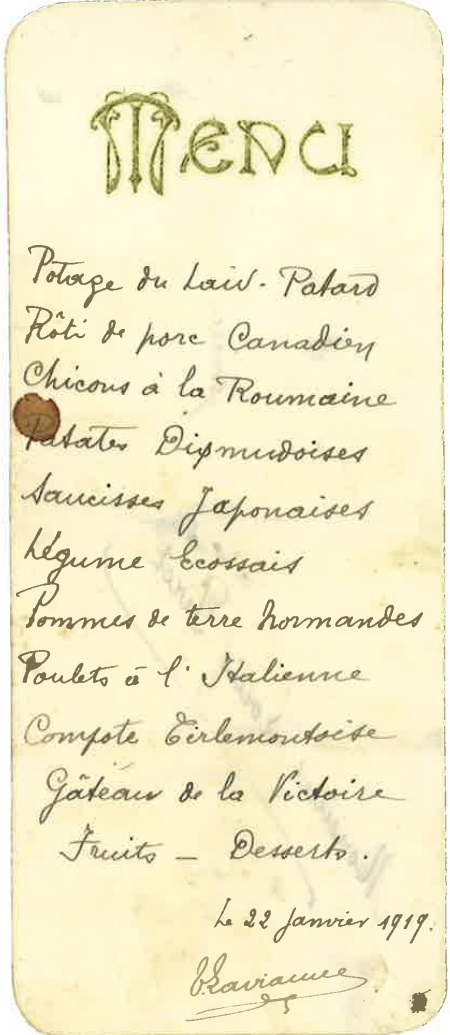 Menu
Potage du Laid-Patard
Rôti de porc Canadien
Chicons à la Roumaine
Patates Dixmudoises
Saucisses Japonaises
Légume Ecossais
Pommes de terre Normandes
Poulets à l'Italienne
Compote Tirlemontoise
Gâteau de la Victoire
Fruits - Desserts.
Le 22 Janvier 1919.